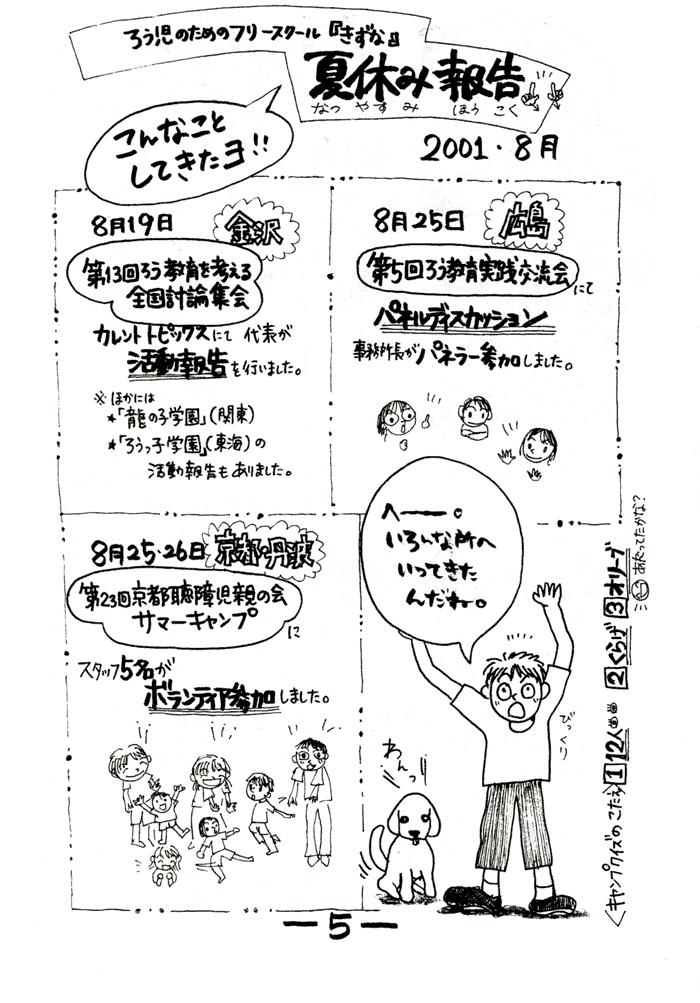 ろう児のためのフリースクール『きずな』
夏休み報告
なつ やす み ほう こく
2001・8月
こんなこと
してきたヨ!!
8月19日
金沢
第13回ろう教育を考える
全国討論集会
カレントトピックスにて 代表が
活動報告を行いました。
※ ほかには
★「龍の子学園」(関東)
★「ろうっ子学園」(東海)の
活動報告もありました。
8月25日
広島
第5回ろう教育実践交流会
にて
パネルディスカッション
事務所長がパネラー参加しました。
8月25・26日
京都・丹波
第23回京都聴障児親の会
サマーキャンプ
に
スタッフ5名が
ボランティア参加しました。
へーー。
いろんな所へ
いってきた
んだねー。
びっくり
わんっ!!
<キャンプクイズのこたえ 1 12人 2 くらげ 3 オリーブ
あたってたかな?
—5—